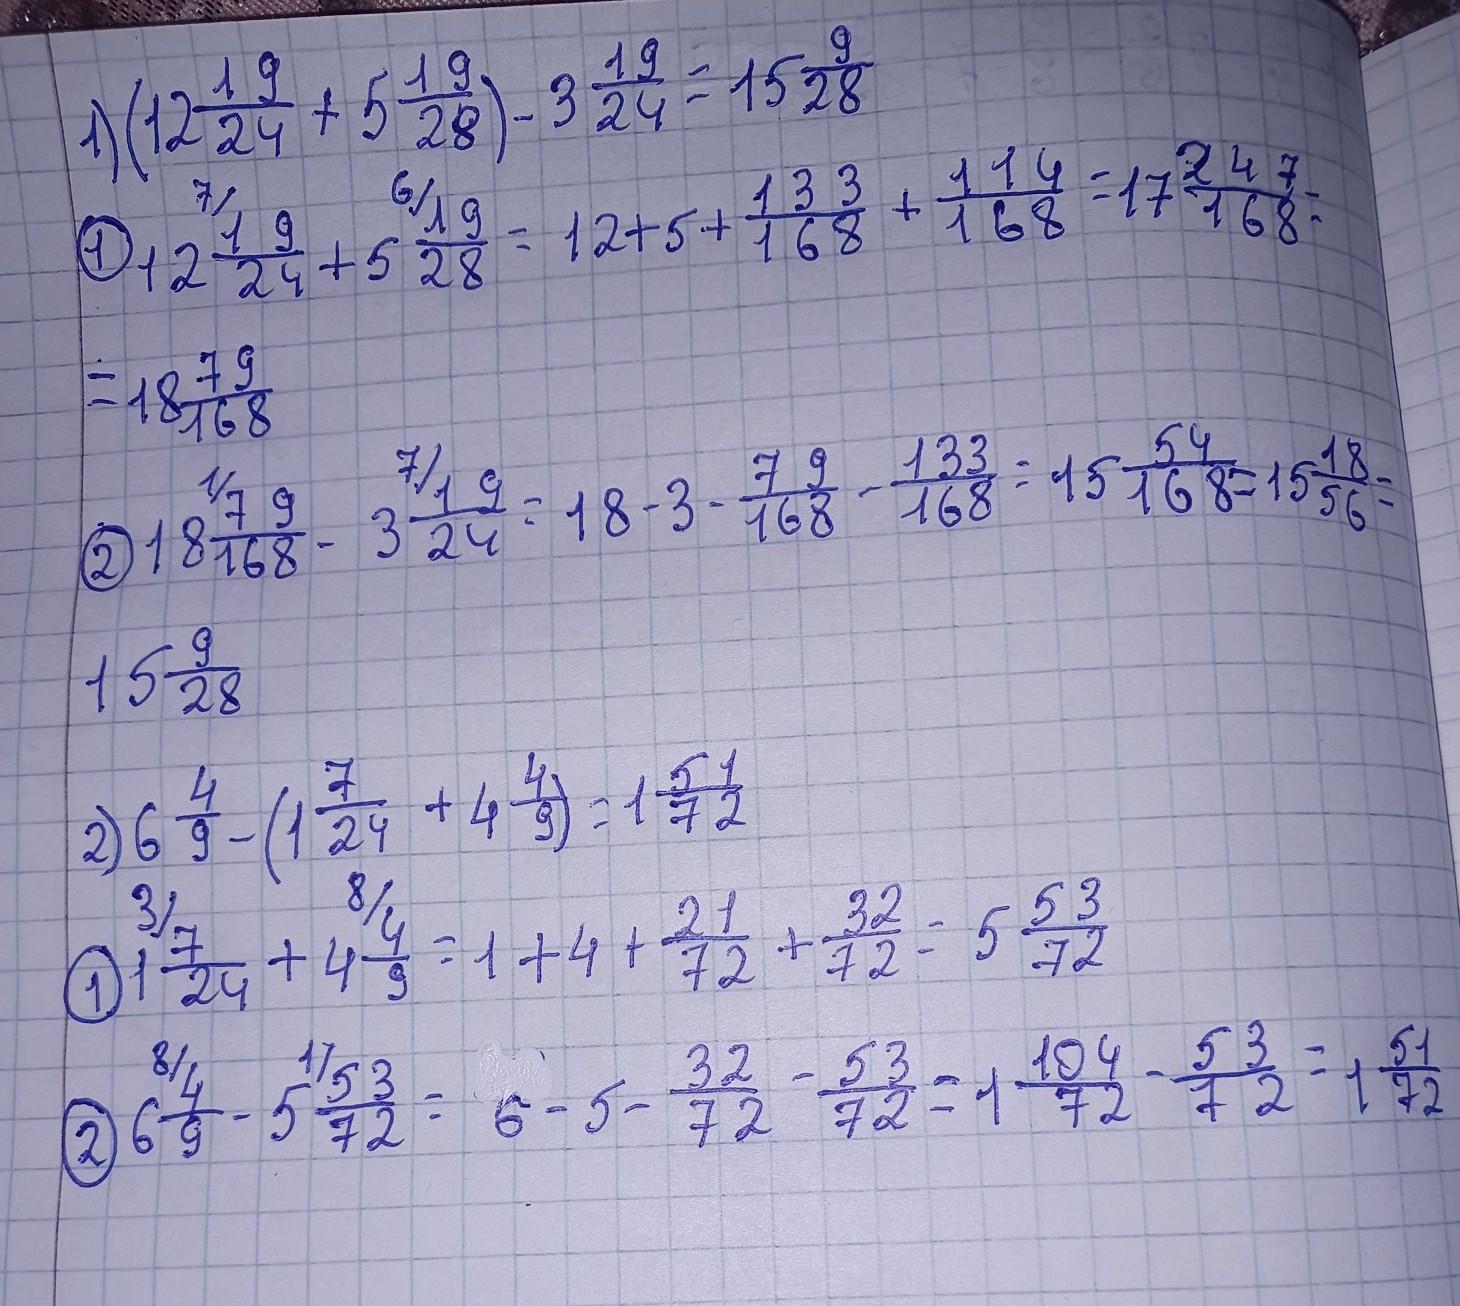 1) (12 19/24 + 5 19/28) - 3 19/24 = 15 9/28
① 12 7/ 19/24 + 5 6/ 19/28 = 12 + 5 + 133/168 + 114/168 = 17 247/168 =
= 18 79/168
② 18 1/ 79/168 - 3 7/ 19/24 = 18 - 3 - 79/168 - 133/168 = 15 54/168 = 15 18/56 =
15 9/28
2) 6 4/9 - (1 7/24 + 4 4/9) = 1 51/72
① 1 3/ 7/24 + 4 8/ 4/9 = 1 + 4 + 21/72 + 32/72 = 5 53/72
② 6 8/ 4/9 - 5 1/ 53/72 = 6 - 5 - 32/72 - 53/72 = 1 104/72 - 53/72 = 1 51/72